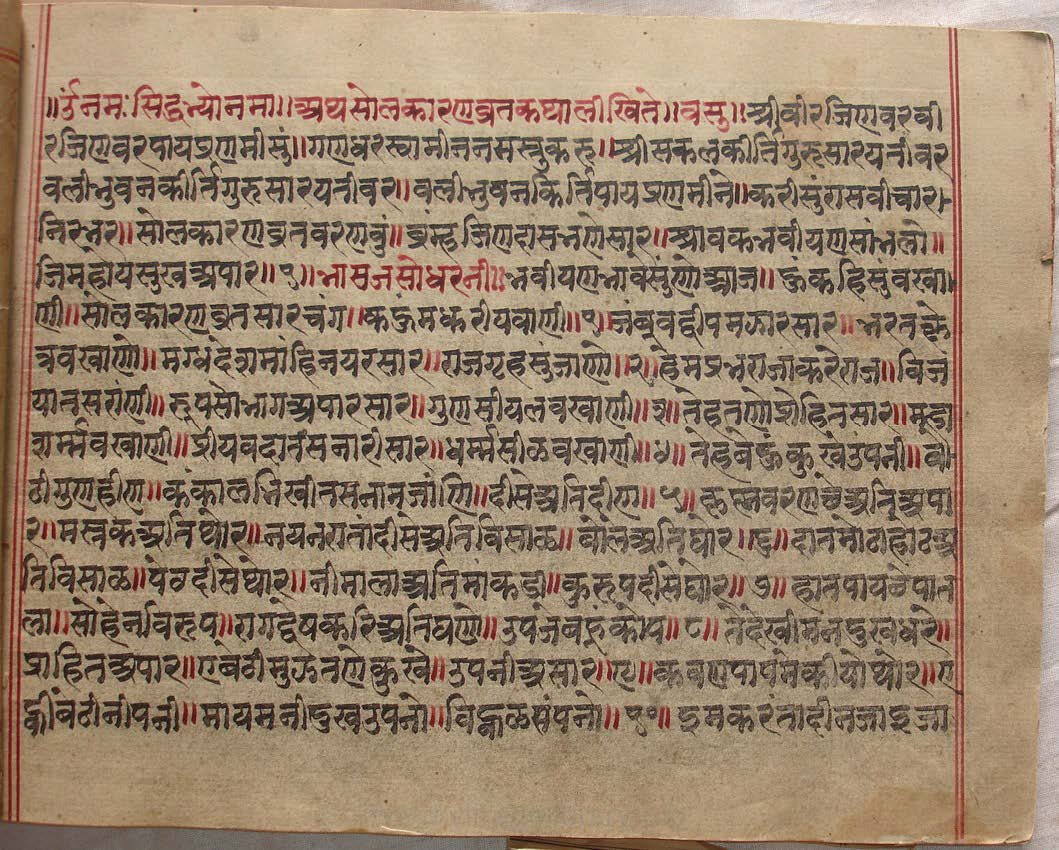 ॥उंनमः सिद्धेभ्योनमः॥॥अथसोलकारणव्रतकथालीखिते॥वस्तु॥श्रीवीरजिणवरवी
रजिणवरपायप्रणमीसुं॥गणधरस्वामीननमस्कुकरू॥श्रीसकलकीर्तिगुरूसारयनीवर
वलीभुवनकीर्तिगुरूसारयनीवर॥वलीभुवनकिर्तिपायप्रणमीने॥करीसुंरासवीचार।
निरभर॥सोलकारणव्रतवरणवुं॥ब्रंम्हजिणदासभणेसार॥श्रावकभवीयणसांभलो॥
जिमहोयसुखअपार॥१॥भासजसोधरनी॥भवीयणभावसुणोआज॥हुंकहिसुंवखा
णी॥सोलकारणव्रतसारचंग॥मधुरीयवाणी॥१॥जंबुवद्वीपमझारसार॥भरतक्षे
त्रवखाणो॥मगधदेशमांहिनयरसार॥राजगृहसुंजाणो॥२॥हेमप्रभराजाकरेराज॥विज
यातसराणी॥रूपसोभागअपारसार॥गुणसीयलवखाणी॥३॥तेहतणोप्रोहितसार॥महा
शर्म्मवखाणी॥प्रीयवदातसनारीसार॥धर्म्मसीळवखाणी॥४॥तेहबहुकुखेउपनी॥बे
टीगुणहीण॥कंकालभिखीतसनामजाणि॥दीसेअतिदीण॥५॥अतिअपा
र॥मस्तकअतिथोर॥नयनरातादीसअतिविसाळ॥बोलेअतिघोर॥६॥दानमोटाहोठअ
तिविसाळ॥दीसेथोर॥नीमालाअतिमाकडा॥कुरूपदीसेघोर॥७॥हातपायछेपात
ला॥सोहेनविरूप॥रागद्वेषकरिअतिघणो॥उपजेबहुकोप॥८॥तेदेखीमनदुखधरे॥
प्रोहितअपार॥एबेटीमुझतणेकुखे॥उपनीअसार॥९॥कवणपापमेकीयोथोर॥ए
बेटीनीपनी॥मायमनीदुखउपनो॥विह्वळसंपनो॥१०॥इमकरंतादीनजाइजा